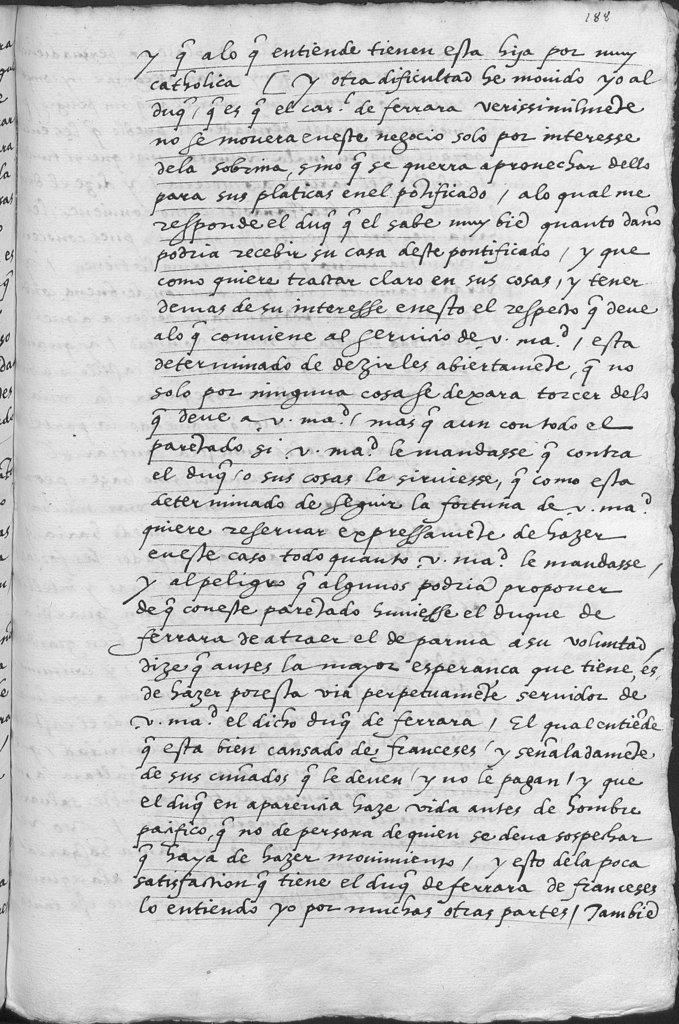 188
y q̃ alo q̃ entiende tienen esta hija por muy
catholica / y otra dificultad he mouido yo al
duq̃, q̃ es q̃ el car.l de ferrara verissimilmẽte
no se mouera eneste negocio solo por interesse
dela sobrina, sino q̃ se querra aprouechar dello
para sus platicas enel põtificado / alo qual me
responde el duq̃ q̃ el sabe muy biẽ quanto daño
podria recebir su casa deste pontificado / y que
como quiere tractar claro en sus cosas, y tener
demas de su interesse enesto el respecto q̃ deue
alo q̃ conuiene al seruicio de v. ma.d / esta
determinado de dezirles abiertamẽte, q̃ no
solo por ninguna cosa se dexara torcer delo
q̃ deue a v. ma.d / mas q̃ aun con todo el
parẽtado si v. ma.d le mandasse q̃ contra
el duq̃ o sus cosas le siruiesse, q̃ como esta
determinado de seguir la fortuna de v. ma.d
quiere reseruar expressamẽte de hazer
eneste caso todo quanto v. ma.d le mandasse /
y al peligro q̃ algunos podriã proponer
de q̃ coneste parẽtado huuiesse el duque de
ferrara de atraer el de parma a su voluntad
dize q̃ antes la mayor esperança que tiene, es
de hazer poresta via perpetuamẽte seruidor de
v. ma.d el dicho duq̃ de ferrara / El qual entiẽde
q̃ esta bien cansado de franceses / y señaladamẽte
de sus cuñados q̃ le deuen / y no le pagan / y que
el duq̃ en aparencia haze vida antes de hombre
pacifico, q̃ no de persona de quien se deua sospechar
q̃ haya de hazer mouimiento / y esto dela poca
satisfaction q̃ tiene el duq̃ de ferrara de franceses
lo entiendo yo por muchas otras partes / Tambiẽ